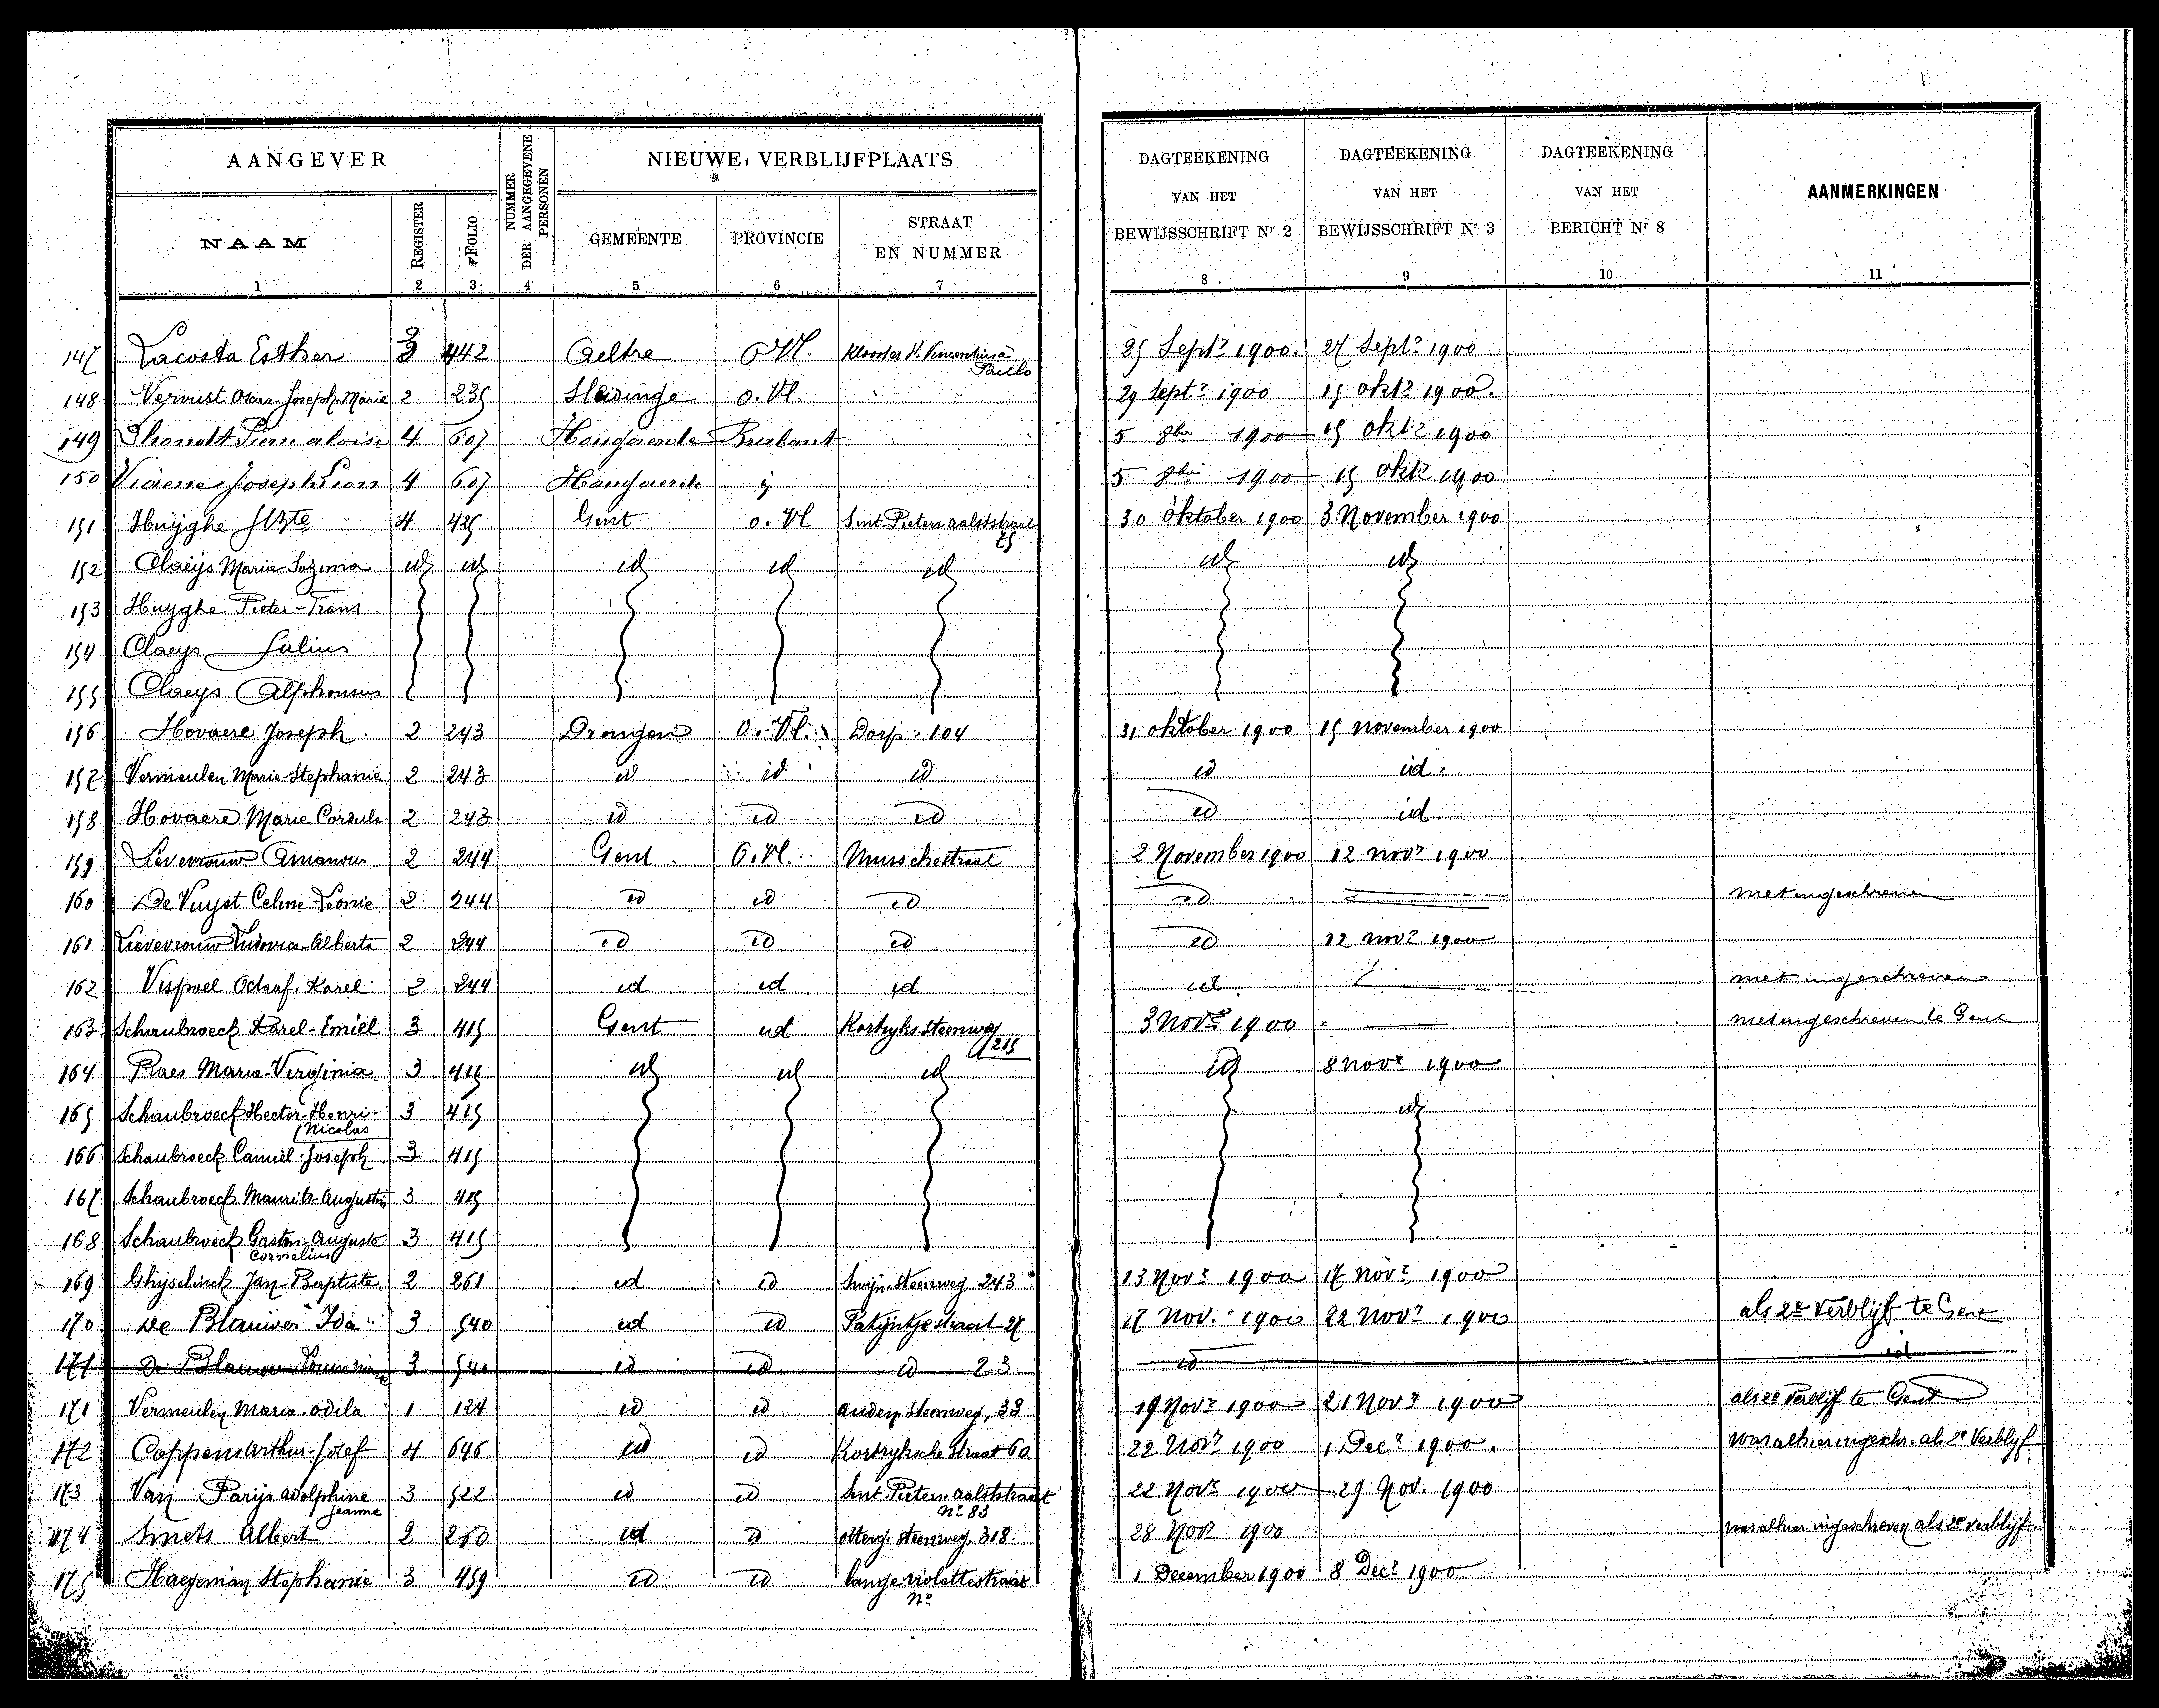 AANGEVER
NUMMER DER AANGEGEVENE PERSONEN
NIEUWE VERBLIJFPLAATS
DAGTEEKENING VAN HET BEWIJSSCHRIFT Nr 2
DAGTEEKENING VAN HET BEWIJSSCHRIFT Nr 3
DAGTEEKENING VAN HET BERICHT Nr 8
AANMERKINGEN
NAAM REGISTER FOLIO GEMEENTE PROVINCIE STRAAT EN NUMMER
1 2 3 4 5 6 7 8 9 10 11
147 Lacosta Esther 3 442 Aeltre O Vl. Klooster Vincentius à Paulo 25 Septr 1900. 27 Septr 1900
148 Vervust Oscar-Joseph-Marie 2 235 Sleidinge O. Vl. 29 Septr 1900 15 oktr 1900.
149 Pierre Aloise 4 607 Hougaerde Brabant 5 8bre 1900 15 oktr 1900
150 Viaene Joseph Leon 4 607 Hougaerde 5 8bre 1900 15 oktr 1900
151 Huijghe 4 425 Gent O. Vl Sint-Pieters aalststraat 75 30 oktober 1900 3 November 1900
152 Claeijs Marie id id id id id id id
153 Huyghe Pieter-Frans
154 Claeys Julius
155 Claeys Alphonsus
156 Hovaere Joseph 2 243 Drongen O. Vl. Dorp 104 31 oktober 1900 15 november 1900
157 Vermeulen Marie-Stephanie 2 243 id id id id id.
158 Hovaere Marie Cordula 2 243 id id id id id.
159 Lievevrouw Amandus 2 244 Gent O. Vl. Musschestraat 2 November 1900 12 novr 1900
160 De Vuyst Celine-Leonie 2 244 id id id id niet ingeschreven
161 Lievevrouw Ludovica-Alberta 2 244 id id id id 12 novr 1900
162 Vispoel Octaaf-Karel 2 244 id id id id niet ingeschreven
163 Schaubroeck Karel-Emiel 3 415 Gent id Kortryksteenweg 215 3 Novr 1900 niet ingeschreven te Gent
164 Raes Maria-Virginia 3 415 id id id id 8 novr 1900
165 Schaubroeck Hector-Henri-Nicolas 3 415 id
166 Schaubroeck Camiel-Joseph 3 415
167 Schaubroeck Maurits-Augustin 3 415
168 Schaubroeck Gaston-Auguste Cornelius 3 415
169 Ghijselinck Jan-Baptiste 2 261 id id steenweg 243 13 Novr 1900 17 novr 1900
170 De Blauwer Ida 3 540 id id Patijntjestraat 27 17 Nov. 1900 22 Novr 1900 als 2e Verblijf te Gent
171 De Blauwer 3 540 id id id 23 id id
171 Vermeulen Maria-Odila 1 124 id id Anden. Steenweg, 33 19 Novr 1900 21 Novr 1900 als 2e Verblijf te Gent
172 Coppens Arthur-Jozef 4 646 id id Kortryksche Straat 60 22 Novr 1900 1 Decr 1900. was alhier ingeschr. als 2e Verblyf
173 Van Parijs Adolphine Jeanne 3 522 id id Sint Pieters aalststraat No 83 22 Novr 1900 29 Nov. 1900
174 Smets Albert 2 260 id id otterg. steenweg 318 28 Novr 1900 was alhier ingeschreven als 2e verblijf.
175 Haegeman Stephanie 3 459 id id lange violettestraat No 1 December 1900 8 Decr 1900